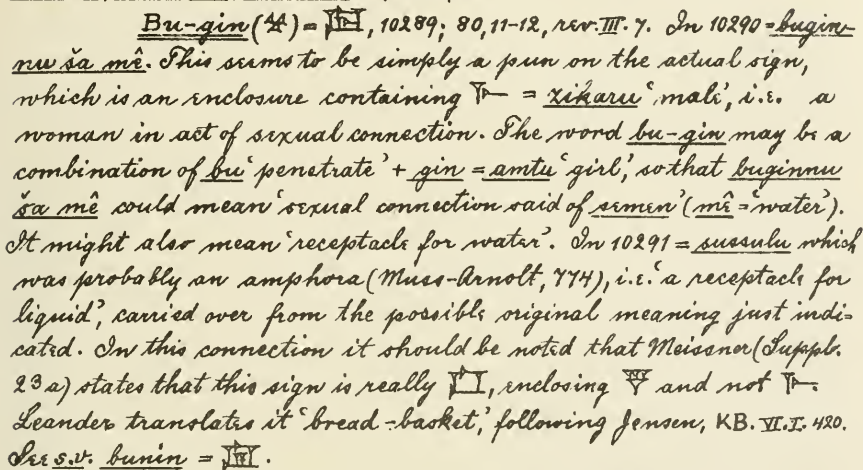 Bu-gin (𒀀) = 𒁀, 10289; 80,11-12, rev. III. 7. In 10290 = bugin-
nu ša mê. This seems to be simply a pun on the actual sign,
which is an enclosure containing = zikaru 'male', i.e. a
woman in act of sexual connection. The word bu-gin may be a
combination of bu 'penetrate' + gin = amtu 'girl', so that buginnu
ša mê could mean 'sexual connection said of semen' (mê = 'water').
It might also mean 'receptacle for water'. In 10291 = sussulu which
was probably an amphora (Muss-Arnolt, 774), i.e. 'a receptacle for
liquid', carried over from the possible original meaning just indi-
cated. In this connection it should be noted that Meissner (Suppl.
23 a) states that this sign is really , enclosing 𒀀 and not .
Leander translates it 'bread-basket,' following Jensen, KB. VI. I. 420.
See s.v. bunin = .